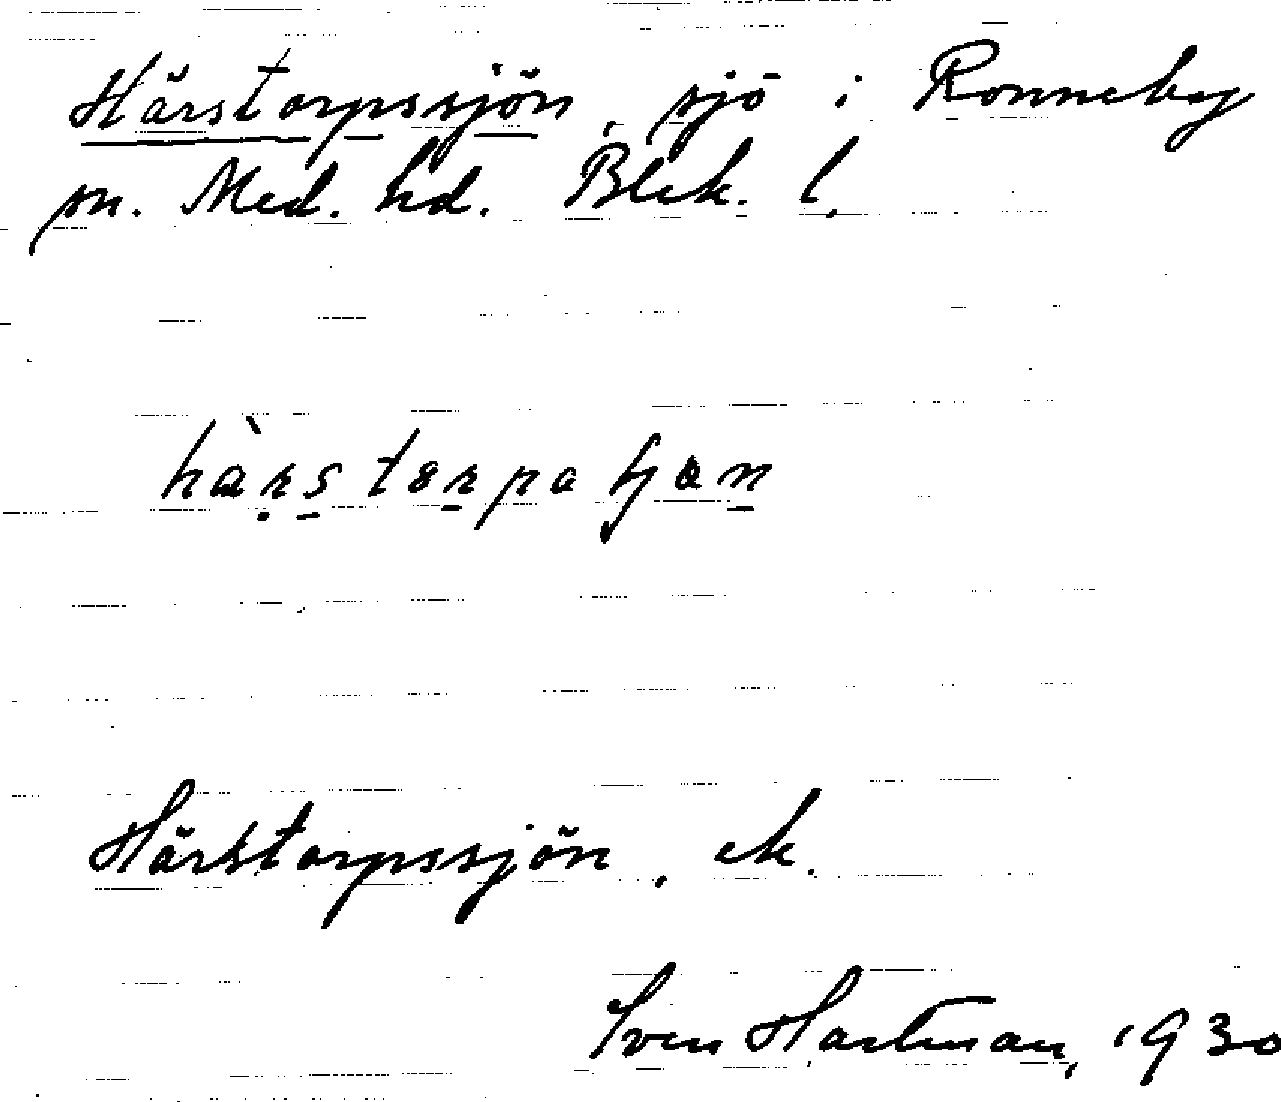 Härstorpssjön, sjö i Ronneby
sn. Med. hd. Blek. l.
Härstorpssjön, ek.
Sven Hartman, 1930